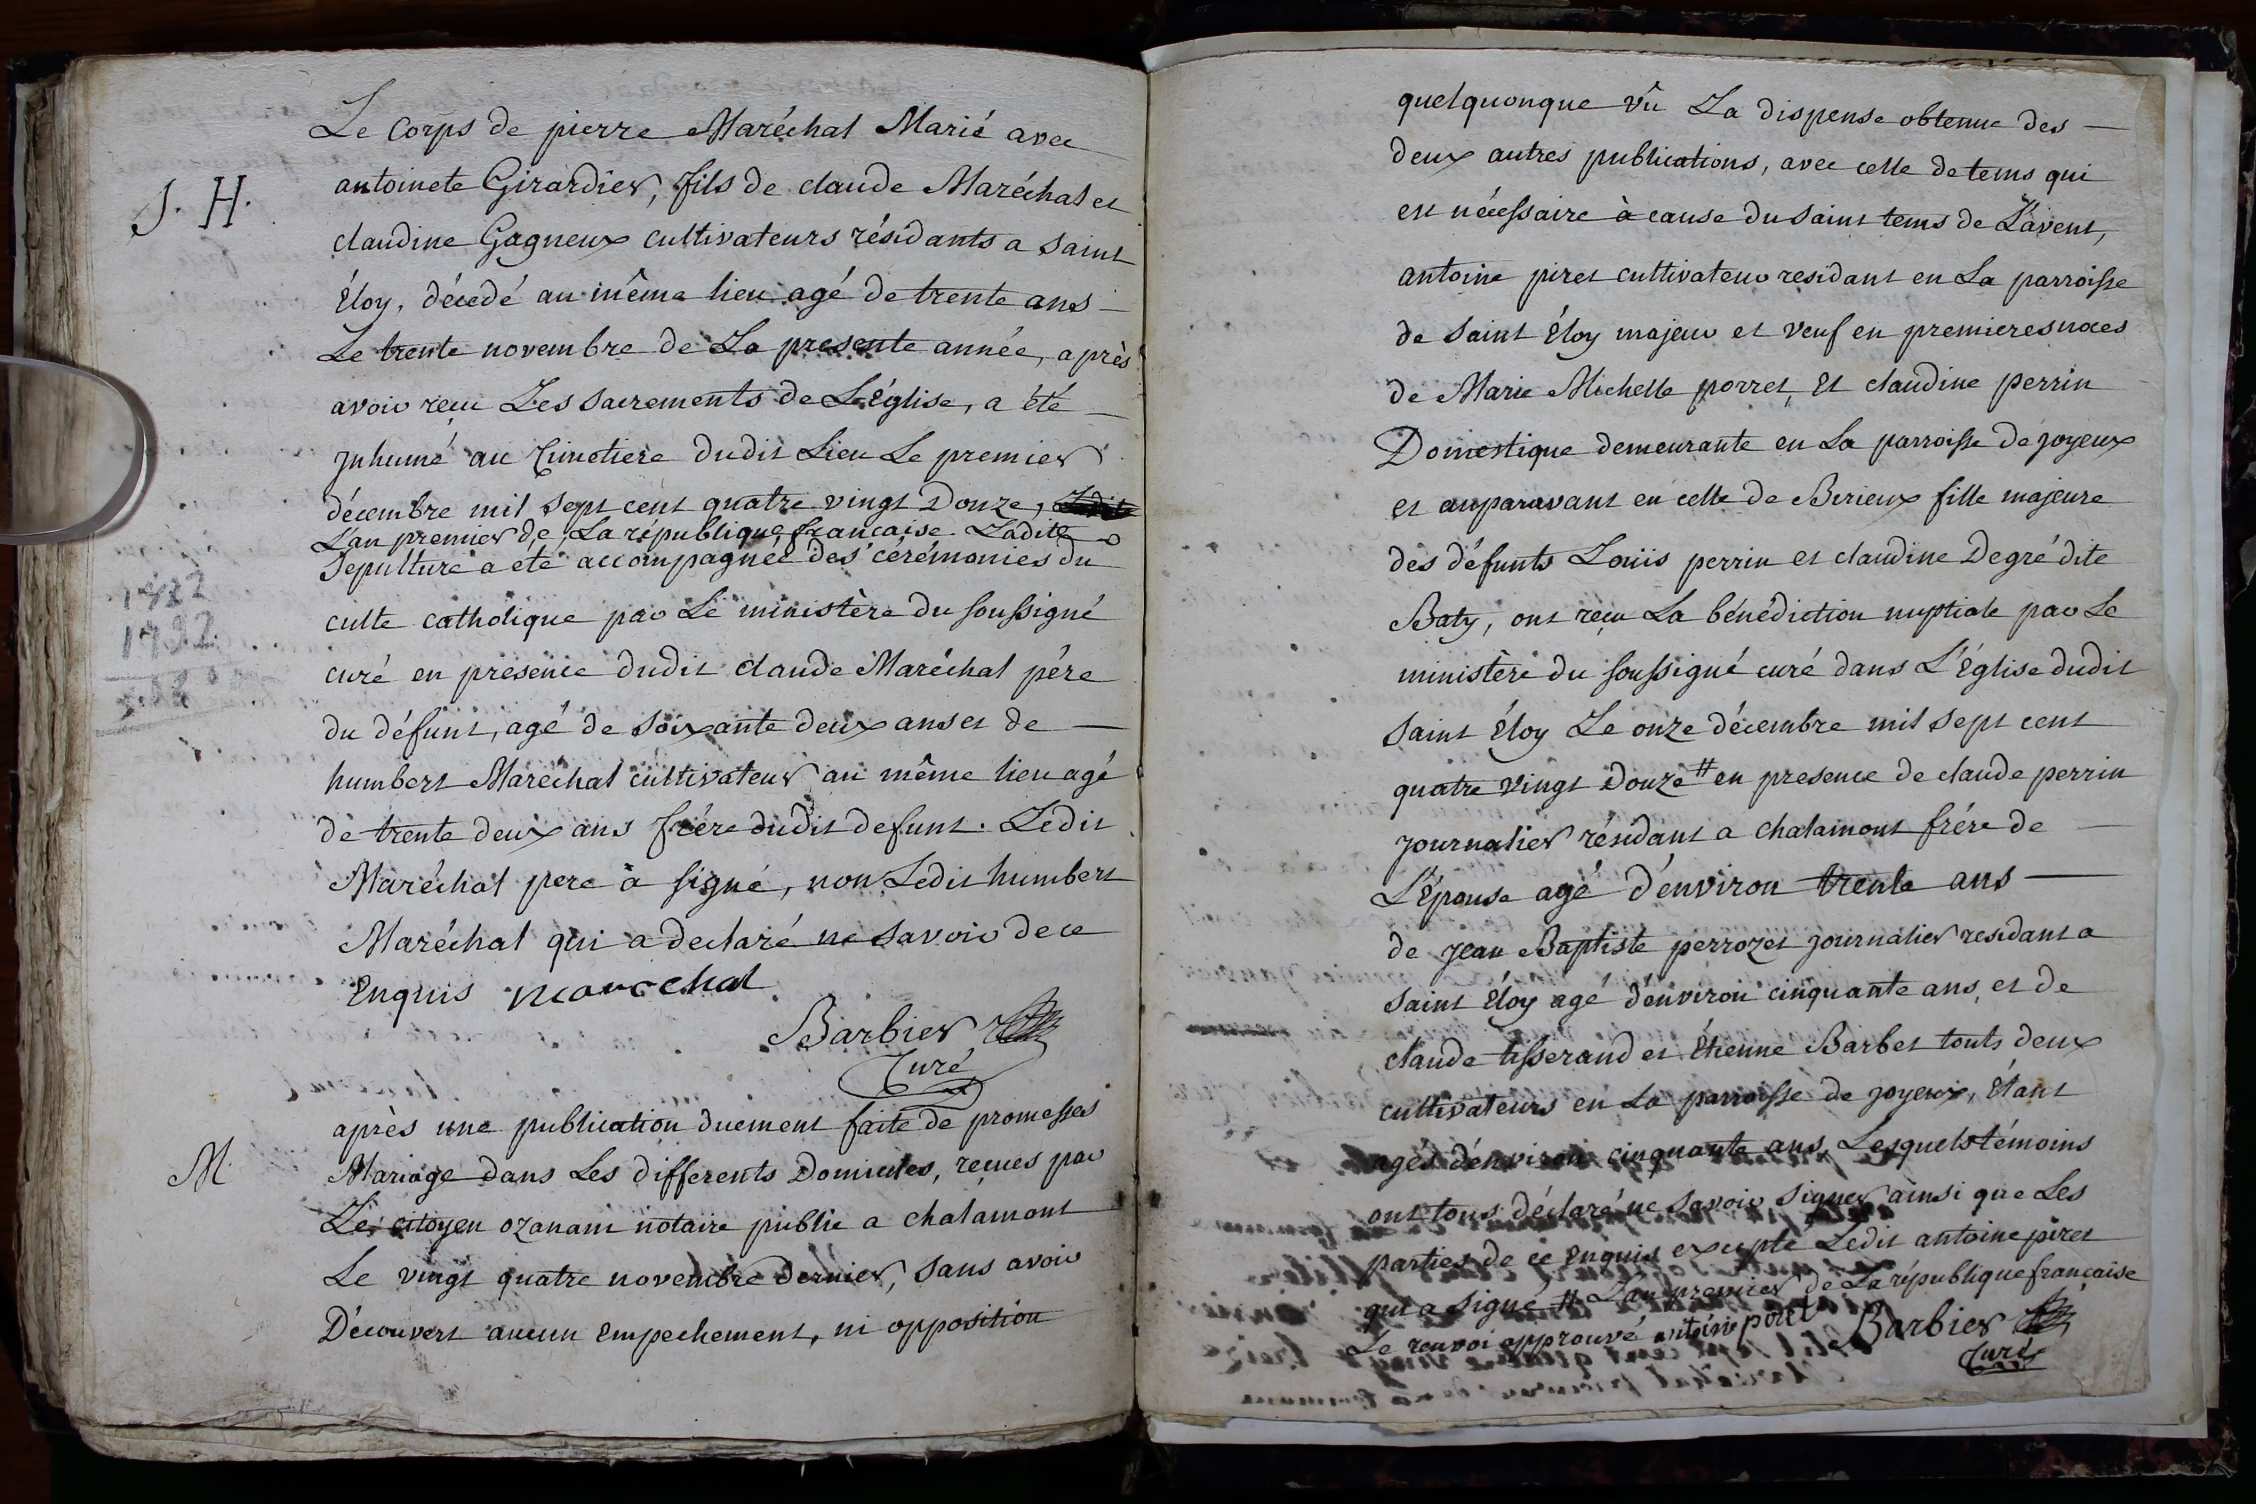 Le Corps de pierre Maréchal Marié avec
S. H.
antoinete Girardier, fils de claude Maréchal et
claudine Gagneux cultivateurs résidants a Saint
Éloy, décedé au même lieu agé de trente ans —
Le trente novembre de La presente année, après
avoir reçu Les Sacrements de L'Église, a été —
Inhumé au Cimetiere dudit Lieu Le premier
décembre mil sept cent quatre vingt Douze, Ladite
L'an premier de La république française. Ladite
Sepulture a été accompagnée des cérémonies du
1792
culte catholique par Le ministère du soussigné
curé en présence dudit claude Maréchal père
du défunt, agé de soixante deux ans et de —
humbert Maréchal cultivateur au même lieu agé
de trente deux ans frère dudit defunt. Ledit
Maréchal pere a signé, non Ledit humbert
Maréchal qui a declaré ne savoir de ce
Enquis marechal
Barbier
Curé
après une publication duement faite de promesses
M.
Mariage dans Les differents Domiciles, reçues par
Le citoyen ozanam notaire public a chalamont
Le vingt quatre novembre dernier, sans avoir
Découvert aucun Empechement, ni opposition
quelquonque vû La dispense obtenue des —
deux autres publications, avec celle de tems qui
est nécessaire à cause du saint tems de L'avent,
antoine piret cultivateur residant en La parroisse
de Saint Éloy majeur et veuf en premieres noces
de Marie Michelle porret, Et claudine perrin
Domestique demeurante en La parroisse de joyeux
et auparavant en celle de Birieux fille majeure
des défunts Loüis perrin et claudine Degré dite
Baty, ont reçu La bénédiction nuptiale par Le
ministère du soussigné curé dans L'Église dudit
Saint Éloy Le onze décembre mil sept cent
quatre vingt Douze # en presence de claude perrin
journalier résidant a chalamont frére de —
L'Épouse agé d'environ trente ans —
de jean Baptiste perrozet journalier residant a
Saint Éloy agé d'environ cinquante ans, et de
claude tisserand et Étienne Barbet touts deux
cultivateurs en La parroisse de joyeux, Étant
agés d'environ cinquante ans, Lesquels témoins
ont tous déclaré ne savoir signer ainsi que Les
parties de ce Enquis excepté Ledit antoine piret
qui a signé # L'an premier de La république française
Le renvoi approuvé antoine piret Barbier
Curé